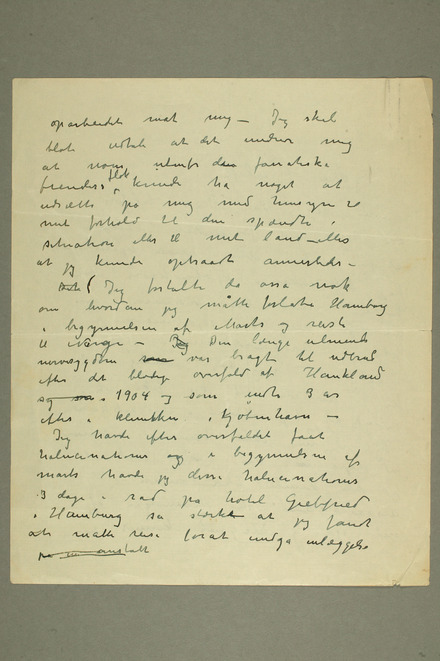 oparbeidet mot mig — Jeg skal
blot udtale at det undrer mig
at nogen udenfor den fanatiske
fiendes flok kunde ha noget at
udsætte på mig med hensyn til
mit forhold til den spændte
situation eller til mit land — eller
at jeg kunde optraadt anderledes —
(Jeg fortalte da ossa nok
om hvordan jeg måtte forlate Hamborg
i begynnelsen af Marts og reiste
til Norge — Den længe ulmende
nervøsgdom var bragt til udbrud
efter det blodige overfald af Haukland
i 1904 og som endte 3 år
efter i klinikken i Kjøbenhavn —
Jeg havde efter overfaldet faat
halucinationer og i begynnelsen af
marts havde jeg disse halucinationer
3 dage i rad på hotel
i Hamburg så stærke at jeg fandt
at måtte reise forat undgå indlæggelse
på en anstalt